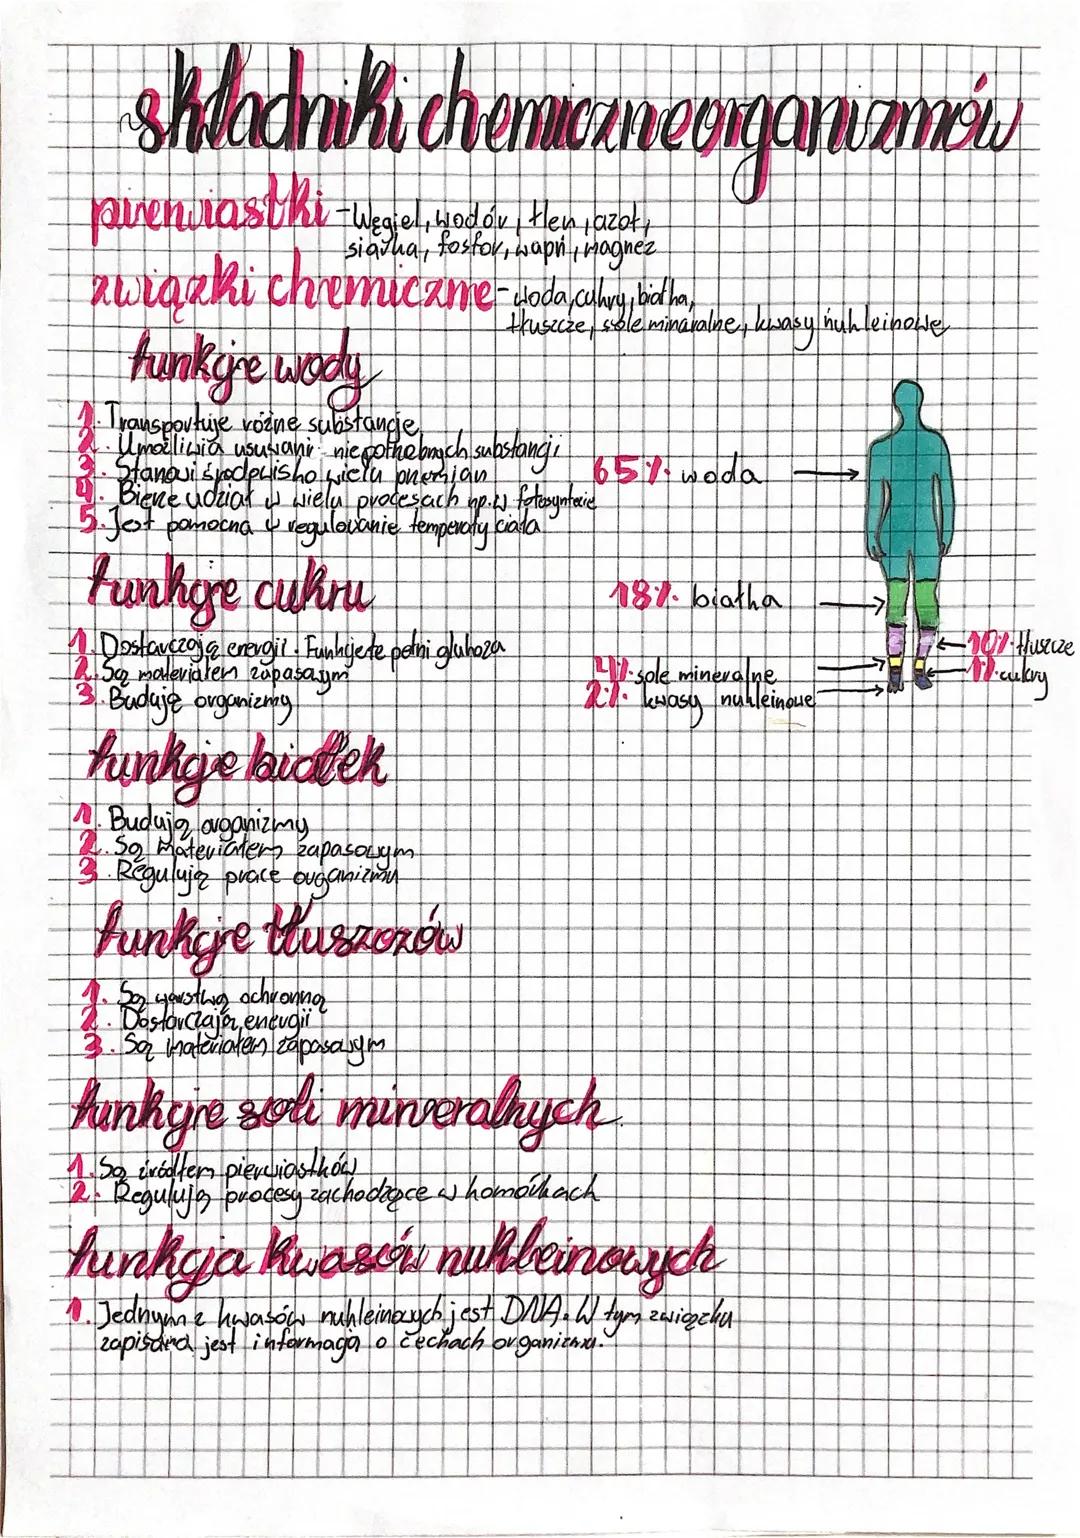 składniki chemiczne organizmów
pierwiastki - Węgiel, wodór, tlen, azot,
siarka, fosfor, wapń, magnez
związki chemiczne - woda, cukry, białka,
tłuszcze, sole mineralne, kwasy nukleinowe
funkcje wody
1. Transportuje różne substancje
2. Umożliwia usuwani niepotrzebnych substancji
3. Stanowi środowisko wielu przemian
4. Bierze udział w wielu procesach np. w fotosyntezie
5. Jest pomocna w regulowanie temperaty ciała
65% woda
funkcje cukru
18% białka
1. Dostarczają energii. Funkcje te pełni glukoza
2. Są materiałem zapasowym
3. Budują organizmy
10% tłuszcze
4% sole mineralne
1% cukry
2% kwasy nukleinowe
funkcje białek
1. Budują organizmy
2. Są materiałem zapasowym
3. Regulują prace organizmu
funkcje tłuszczów
1. Są warstwą ochronną
2. Dostarczają energii
3. Są materiałem zapasowym
funkcje soli mineralnych
1. Są źródłem pierwiastków
2. Regulują procesy zachodzące w komórkach
funkcja kwasów nukleinowych
1. Jednym z kwasów nukleinowych jest DNA. W tym związku
zapisana jest informacja o cechach organizmu.